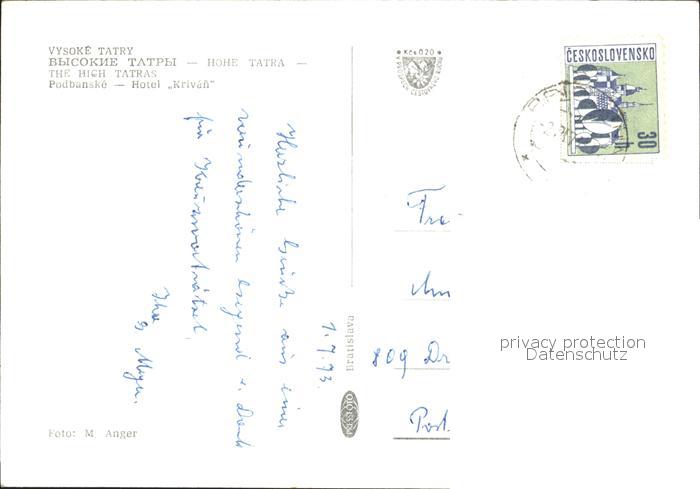 VYSOKÉ TATRY
ВЫСОКИЕ ТАТРЫ — HOHE TATRA —
THE HIGH TATRAS
Podbanské — Hotel „Kriváň"
Kčs 0,20
ČESKOSLOVENSKO
30
1.7.73.
Herzliche Grüße aus einer
wunderschönen Gegend u. Dank
für Kreuzworträtsel.
Ihre
G Meyer.
Fra
An
809 Dr
Post.
Bratislava
PRESSFOTO
privacy protection
Datenschutz
Foto: M. Anger